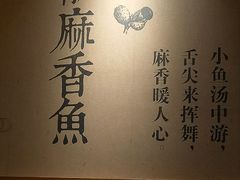 麻香魚
小鱼汤中游，
舌尖来挥舞，
麻香暖人心。